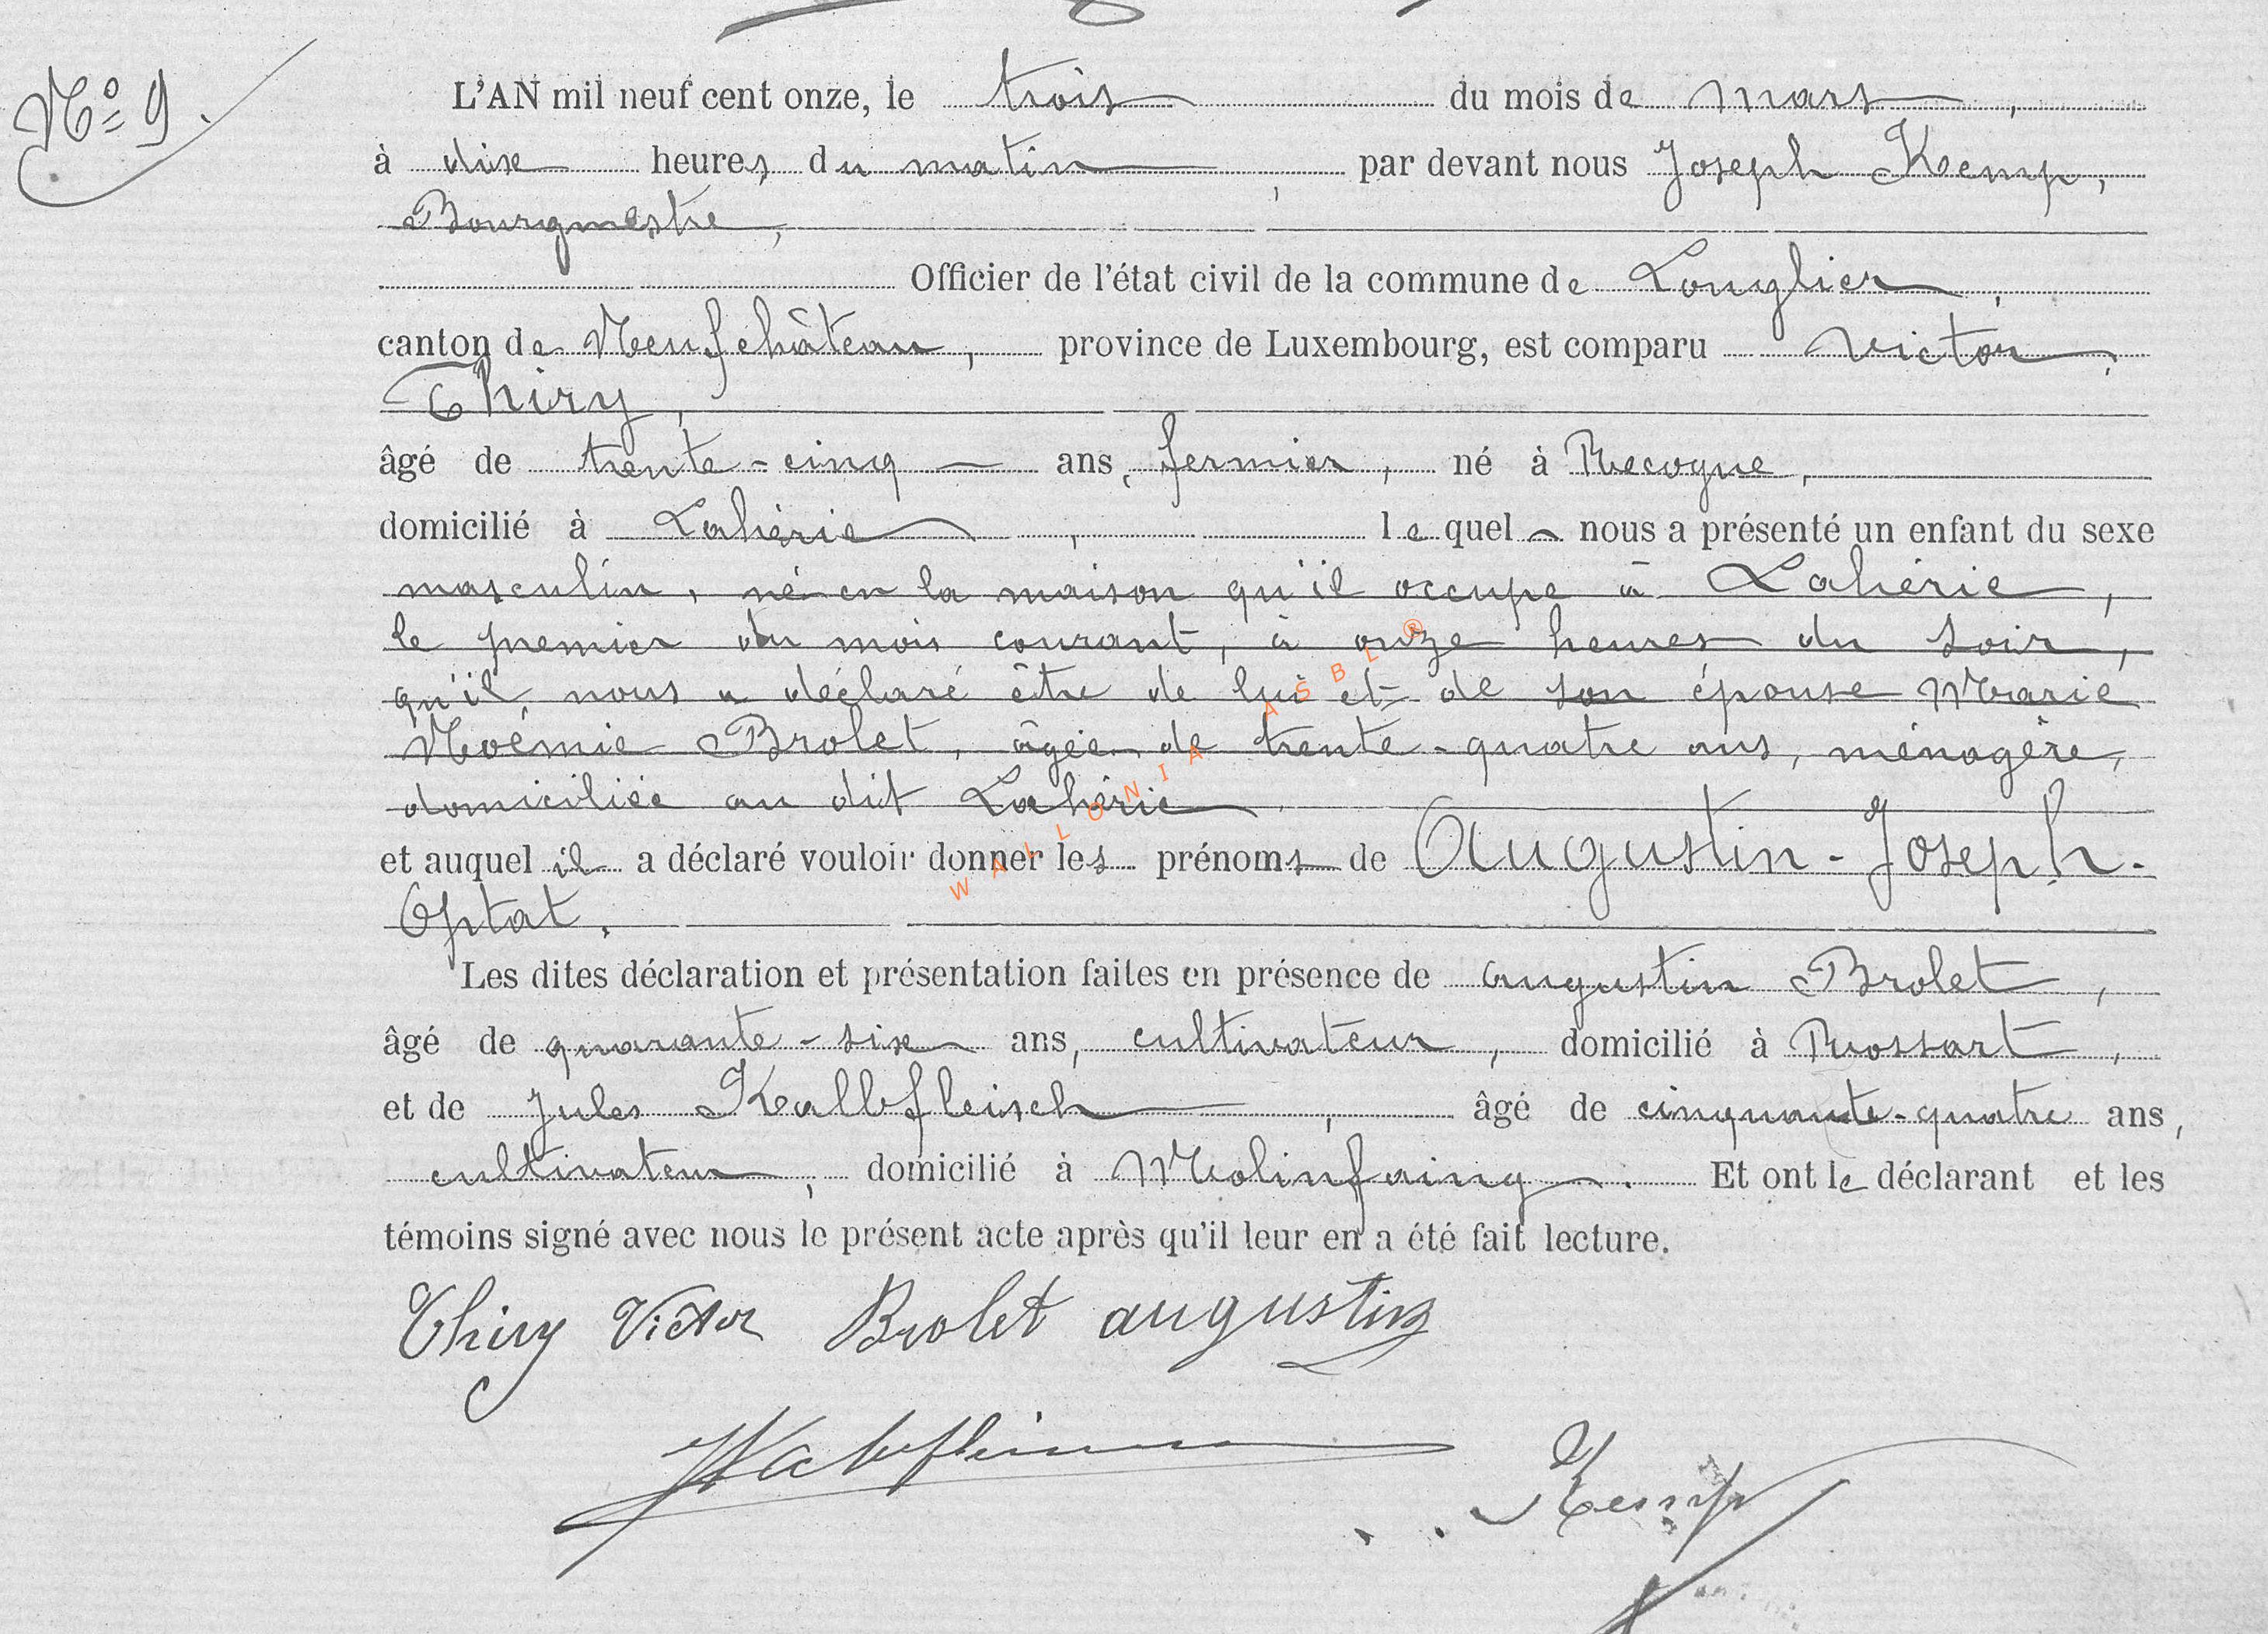 N° 9.
L'AN mil neuf cent onze, le trois du mois de mars,
à dix heures du matin, par devant nous Joseph Kemp,
Bourgmestre,
Officier de l'état civil de la commune de Longlier,
canton de Neufchâteau, province de Luxembourg, est comparu Victor
Thiry,
âgé de trente-cinq ans, fermier, né à Recogne,
domicilié à Lahérie, lequel nous a présenté un enfant du sexe
masculin, né en la maison qu'il occupe à Lahérie,
le premier du mois courant, à onze heures du soir,
qu'il nous a déclaré être de lui et de son épouse Marie
Noémie Brolet, âgée de trente-quatre ans, ménagère,
domiciliée au dit Lahérie
et auquel il a déclaré vouloir donner les prénoms de Augustin-Joseph-
Optat.
Les dites déclaration et présentation faites en présence de Augustin Brolet,
âgé de quarante-six ans, cultivateur, domicilié à Rossart,
et de Jules Kalbfleisch, âgé de cinquante-quatre ans,
cultivateur, domicilié à Molinfaing. Et ont le déclarant et les
témoins signé avec nous le présent acte après qu'il leur en a été fait lecture.
Thiry Victor Brolet augustin
Kemp
WALLONIA ASBL ®